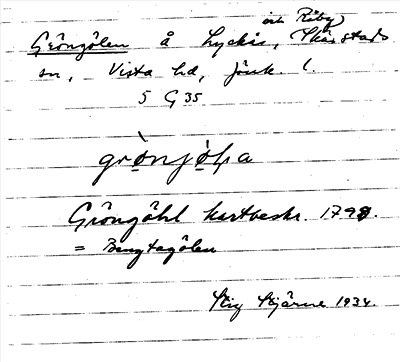 Gröngölen å Lyckås, och Råby Skärstads
sn, Vista hd, Jönk. l.
5 G 35
grònjö̀ḷa
Gröngöhl kartbeskr. 1798.
= Bengtagölen
Stig Stjärne 1934.